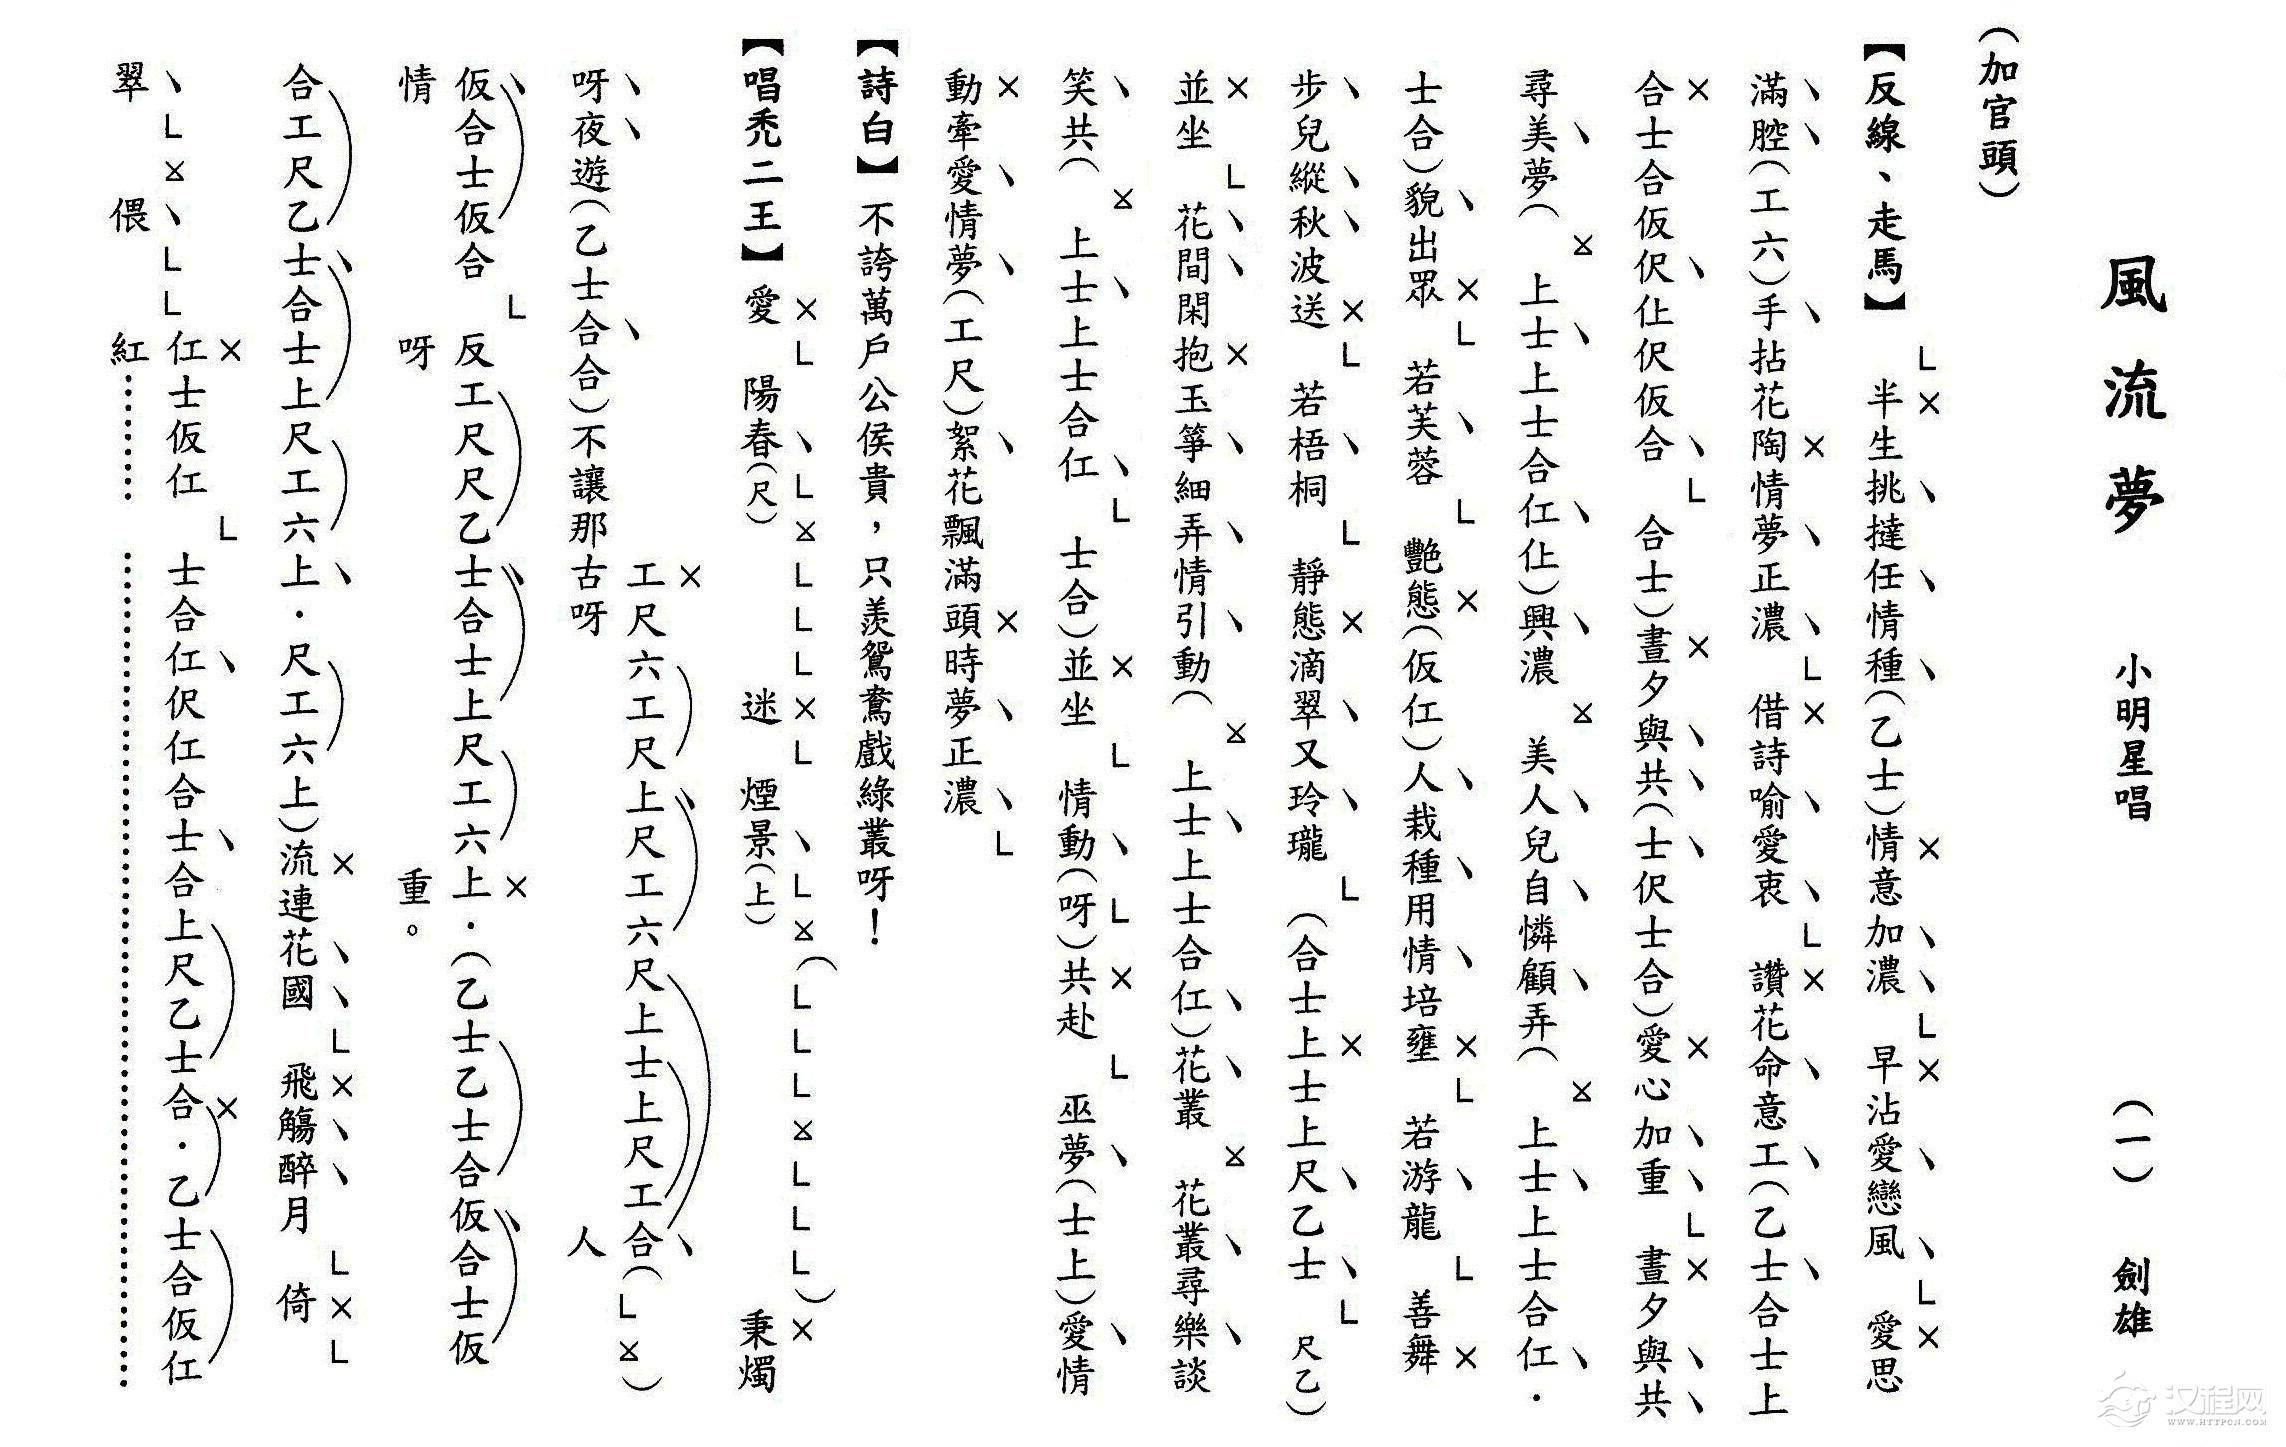 風流夢 小明星唱 (一) 劍雄
(加官頭)
【反線、走馬】 半生挑撻任情種(乙士)情意加濃 早沾愛戀風 愛思
滿腔(工六)手拈花陶情夢正濃 借詩喻愛衷 讚花命意工(乙士合士上
合士合仮伬仩伬仮合 合士)晝夕與共(士伬士合)愛心加重 晝夕與共
尋美夢( 上士上士合仜仩)興濃 美人兒自憐顧弄( 上士上士合仜.
士合)貌出眾 若芙蓉 艷態(仮仜)人栽種用情培壅 若游龍 善舞
步兒縱秋波送 若梧桐 靜態滴翠又玲瓏 (合士上士上尺乙士 尺乙)
並坐 花間閑抱玉箏細弄情引動( 上士上士合仜)花叢 花叢尋樂談
笑共( 上士上士合仜 士合)並坐 情動(呀)共赴 巫夢(士上)愛情
動牽愛情夢(工尺)絮花飄滿頭時夢正濃
【詩白】不誇萬戶公侯貴，只羨鴛鴦戲綠叢呀！
【唱禿二王】愛 陽春(尺) 迷 煙景(上) 秉燭
呀夜遊(乙士合合)不讓那古呀 人
工尺六工尺上尺工六尺上士上尺工合(L )
仮合士仮合 反工尺尺乙士合士上尺工六上.(乙士乙士合仮合士仮
情 呀 重。
合工尺乙士合士上尺工六上.尺工六上)流連花國 飛觴醉月 倚
仜士仮仜 士合仜伬仜合士合上尺乙士合.乙士合仮仜
翠 偎 紅……
汉程网
WWW.HTTPCN.COM